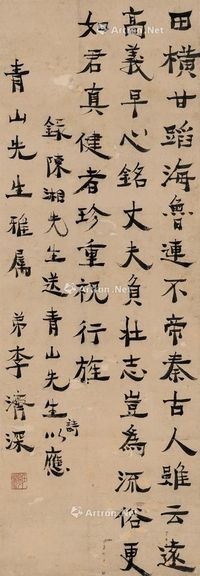 田横甘蹈海魯連不帝秦古人雖云遠
高義早心銘丈夫負壯志豈為流俗更
如君真健者珍重祝行旌
錄陳湘先生送青山先生詩以應
青山先生雅属
弟李濟深